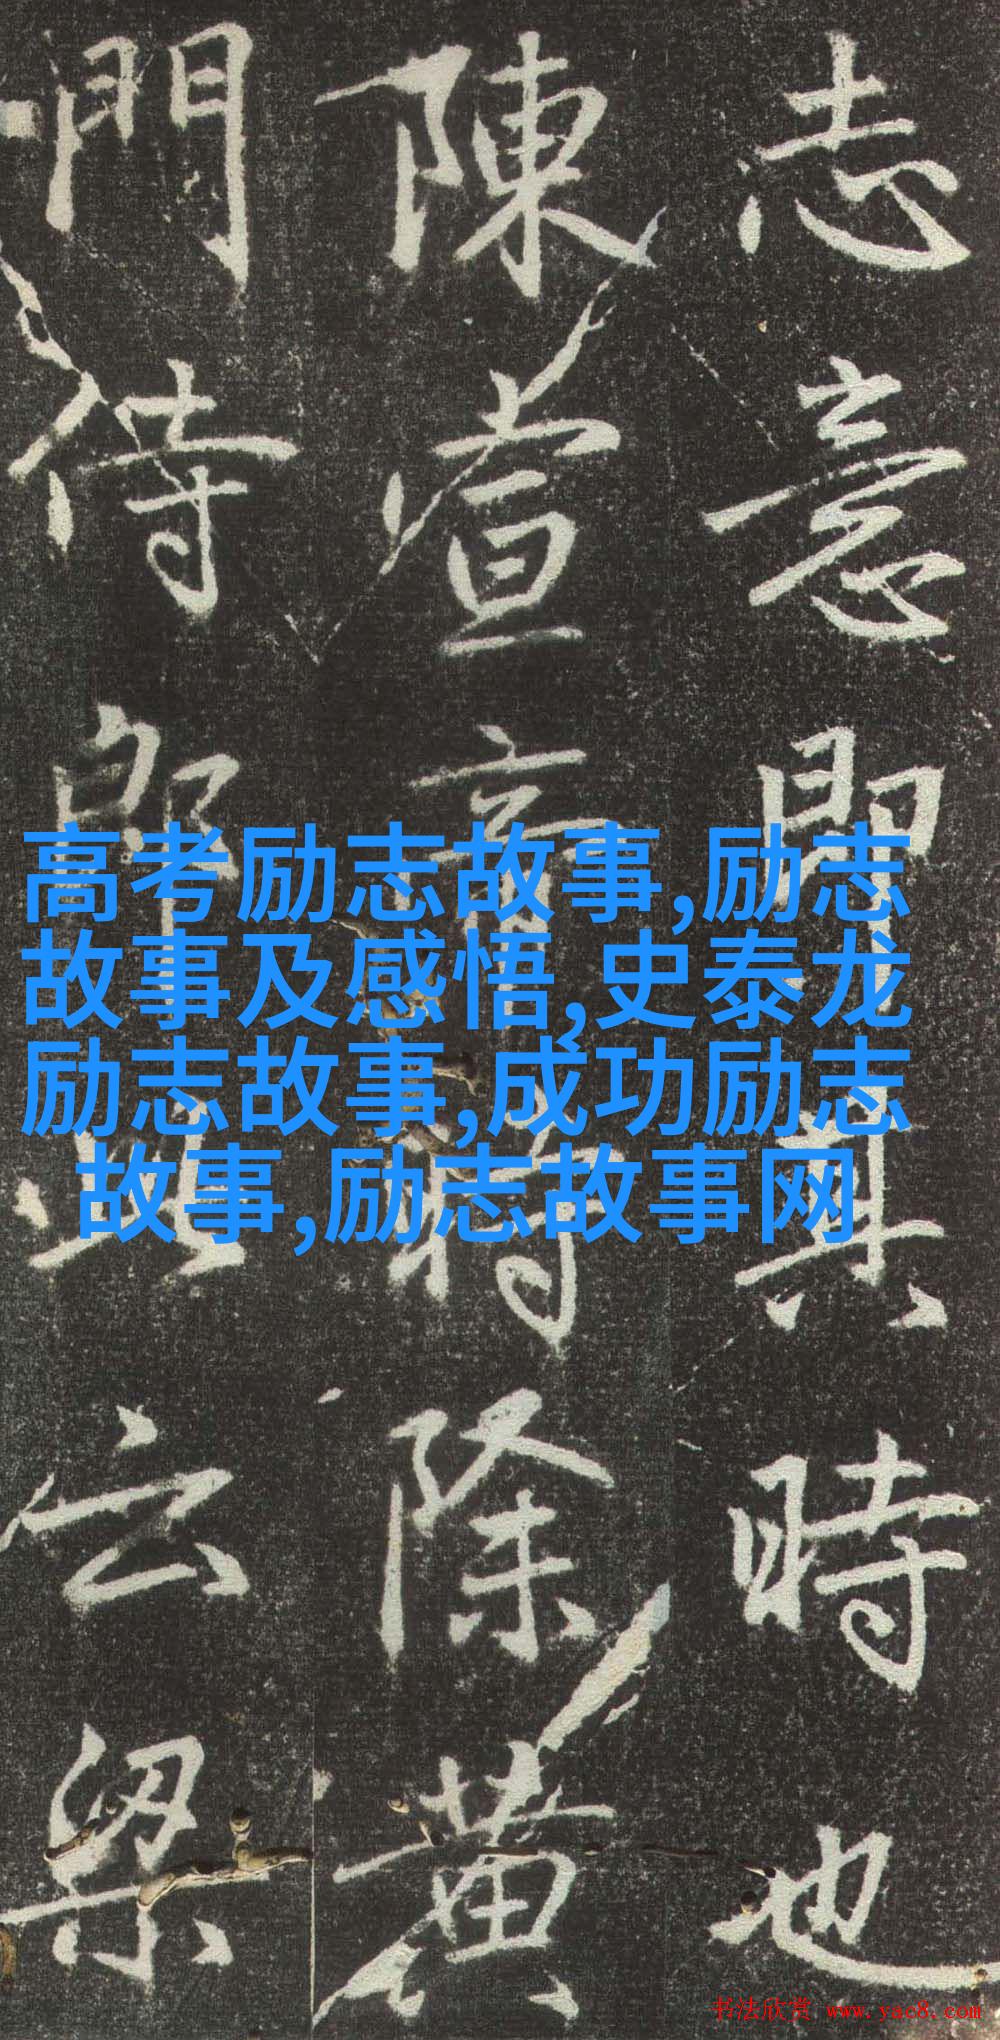 志意其時也
陳宣帝時除黃
門侍郎此云梁
高考励志故事,励志
故事及感悟,史泰龙
励志故事,成功励志
故事,励志故事网
书法欣赏 www.yac8.com